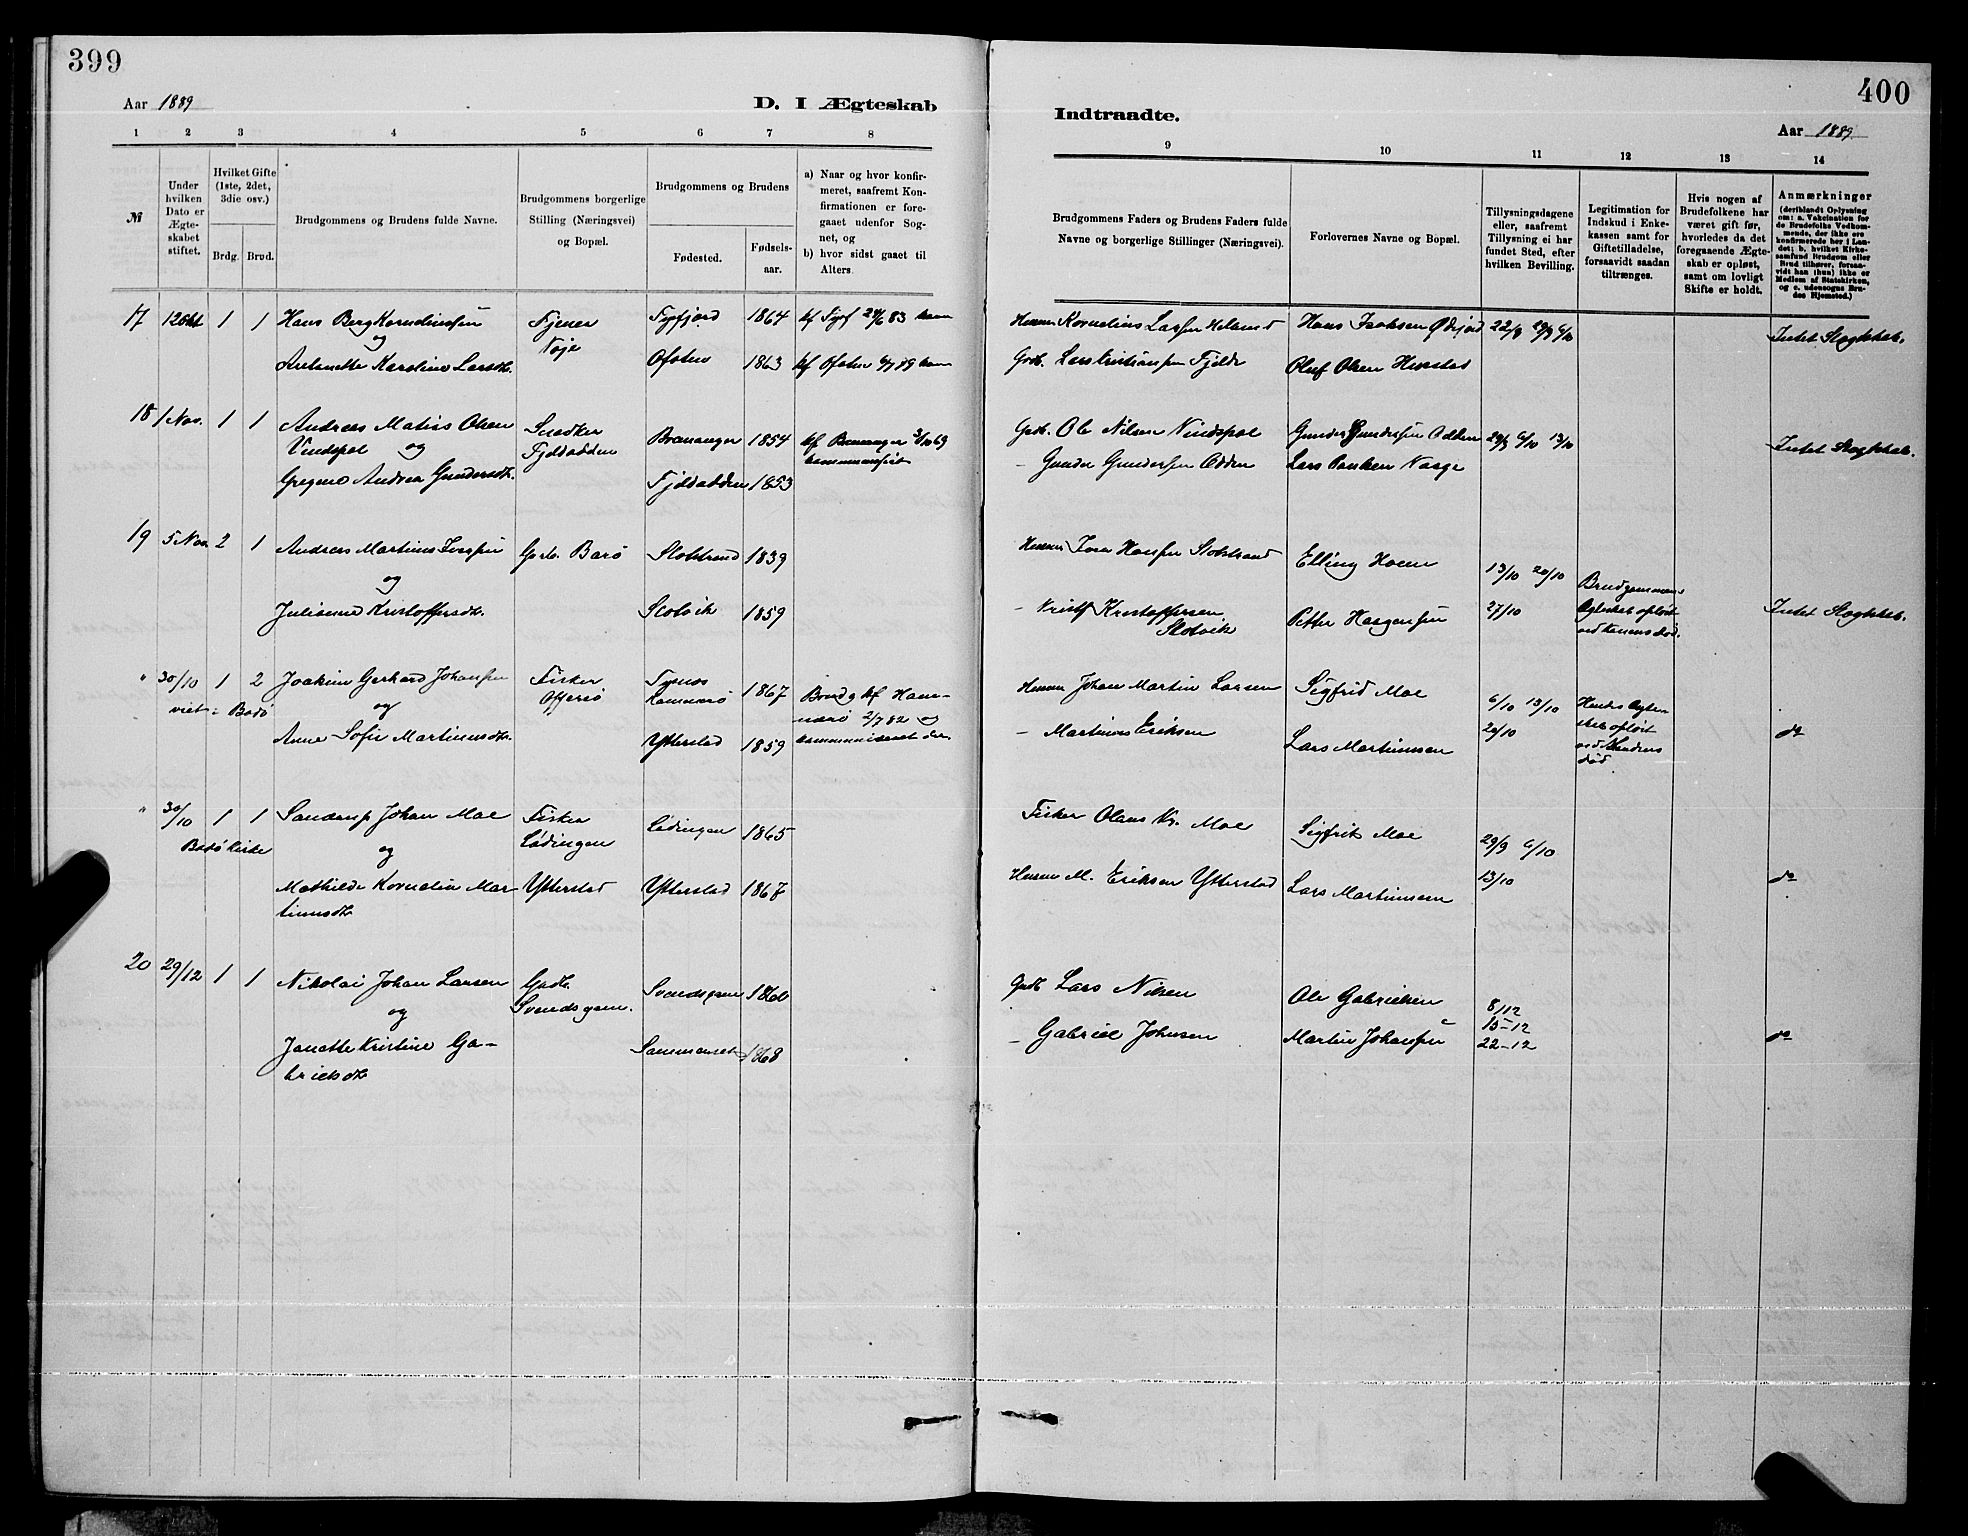 399
Aar 1889
D. I Ægteskab
1 2 3 4 5 6 7 8
№
Under hvilken Dato er Ægteskabet stiftet.
Hvilket Gifte (1ste, 2det, 3die osv.)
Brdg. Brud.
Brudgommens og Brudens fulde Navne.
Brudgommens borgerlige Stilling (Næringsvei) og Bopæl.
Brudgommens og Brudens
Fødested.
Fødselsaar.
a) Naar og hvor konfirmeret, saafremt Konfirmationen er foregaaet udenfor Sognet, og
b) hvor sidst gaaet til Alters.
17 12 Okt 1 1 Hans Berg Korneliussen Tjener 1864
og
Antonette Karoline Larsdtr. Ofoten 1863
18 1 Nov. 1 1 Andreas Matias Olsen Snedker 1854
Vindspol og Fjeldodden
Gregine Andrea Gundersdtr. Fjeldodden 1853
19 5 Nov. 2 1 Andreas Martinus Iversen Gdb. Barø Slotstrand 1839
og
Julianne Kristoffersdtr. Slotvik 1859
" 30/10 1 2 Joakim Gerhard Johansen Fisker Tranøs 1867 Brudg kf Ham-
viet i Bodø og Offersø Hammerø merø 2/7 82 og
Anne Sofie Martinusdtr. Ytterstad 1859 kommuniseret der.
" 30/10 1 1 Sanderup Johan Moe Fisker Lødingen 1865
Bodø Kirke og Lødingen
Mathilde Kornelia Mar- Ytterstad Ytterstad 1867
tinusdtr
20 29/12 1 1 Nikolai Johan Larsen Gdb. Svendsgam 1860
og Svendsgam.
Janette Kristine Ga- Sommerset 1868
brielsdtr
400
Indtraadte.
Aar 1889.
9 10 11 12 13 14
Brudgommens Faders og Brudens Faders fulde Navne og borgerlige Stillinger (Næringsvei).
Forlovernes Navne og Bopæl.
Tillysningsdagene eller, saafremt Tillysning ei har fundet Sted, efter hvilken Bevilling.
Legitimation for Indskud i Enkekassen samt for Giftetilladelse, forsaavidt saadan tiltrænges.
Hvis nogen af Brudefolkene har været gift før, hvorledes da det foregaaende Ægteskab er opløst, samt om lovligt Skifte er holdt.
Anmærkninger
(deriblandt Oplysning om: a. Vakcination for de Brudefolks Vedkommende, der ikke ere konfirmerede her i Landet; b. hvilket Kirkesamfund Brudgom eller Brud tilhører, forsaavidt han (hun) ikke er Medlem af Statskirken, og c. udensogns Brudes Hjemsted.)
Kornelius Larsen Helland Hans Isaksen 22/9 29/9 6/10 Intet Slægtskab.
Gdb. Lars Kristiansen Fjelde Oluf Olsen Hustad
Gdb. Ole Nilsen Vindspol Gunder Gundersen Odden 29/9 6/10 13/10 Intet Slægtskab.
- Gunder Gundersen Odden Lars Paulsen Naage
Iver Hansen Slotstrand Elling Hveem 13/10 20/10 Brudgommens
- Kristoffersen Slotvik Petter Haagensen 27/10 Ægteskab opløst ved Konens død. Intet Slægtskab.
Johan Martin Larsen Sigfrid Moe 6/10 13/10 Hendes Ægte-
- Martinus Eriksen Lars Martinussen 20/10 skab opløst ved Mandens død do
Fisker Olaus Kr. Moe Sigfrid Moe 29/9 6/10
M. Eriksen Ytterstad Lars Martinussen 13/10 do
Gdb Lars Nilsen Ole Gabrielsen 8/12
15-12
- Gabriel Johnsen Martin Johansen 22-12 do